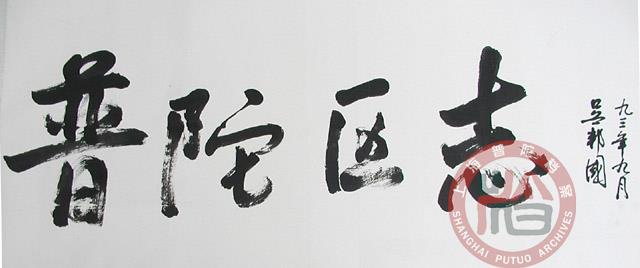 普陀区志
九三年九月
吴邦国
上海普陀档案
SHANGHAI PUTUO ARCHIVES